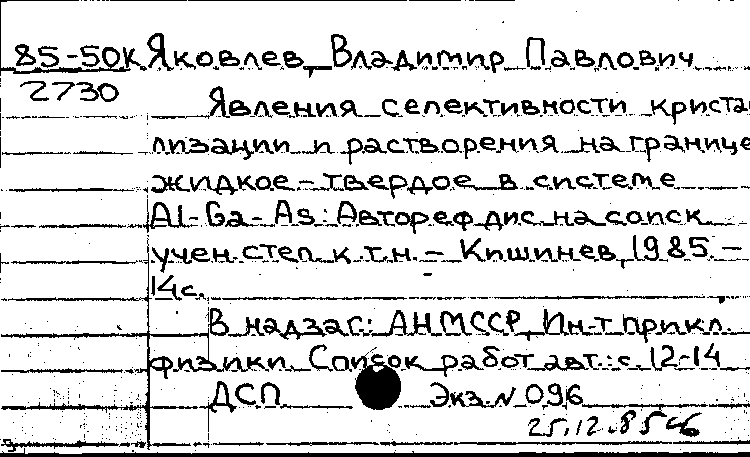 85-50К Яковлев, Владимир Павлович
2730
Явления селективности криста
лизации и растворения на границе
жидкое-твердое в системе
Al-Ga-As: Автореф дис. на соиск
учен. степ. к.т.н. - Кишинев, 1985. -
14с.
В надзаг.: АН МССР, Ин-т прикл.
физики. Список работ авт.: с. 12-14
ДСП Экз. N 096
25.12.85